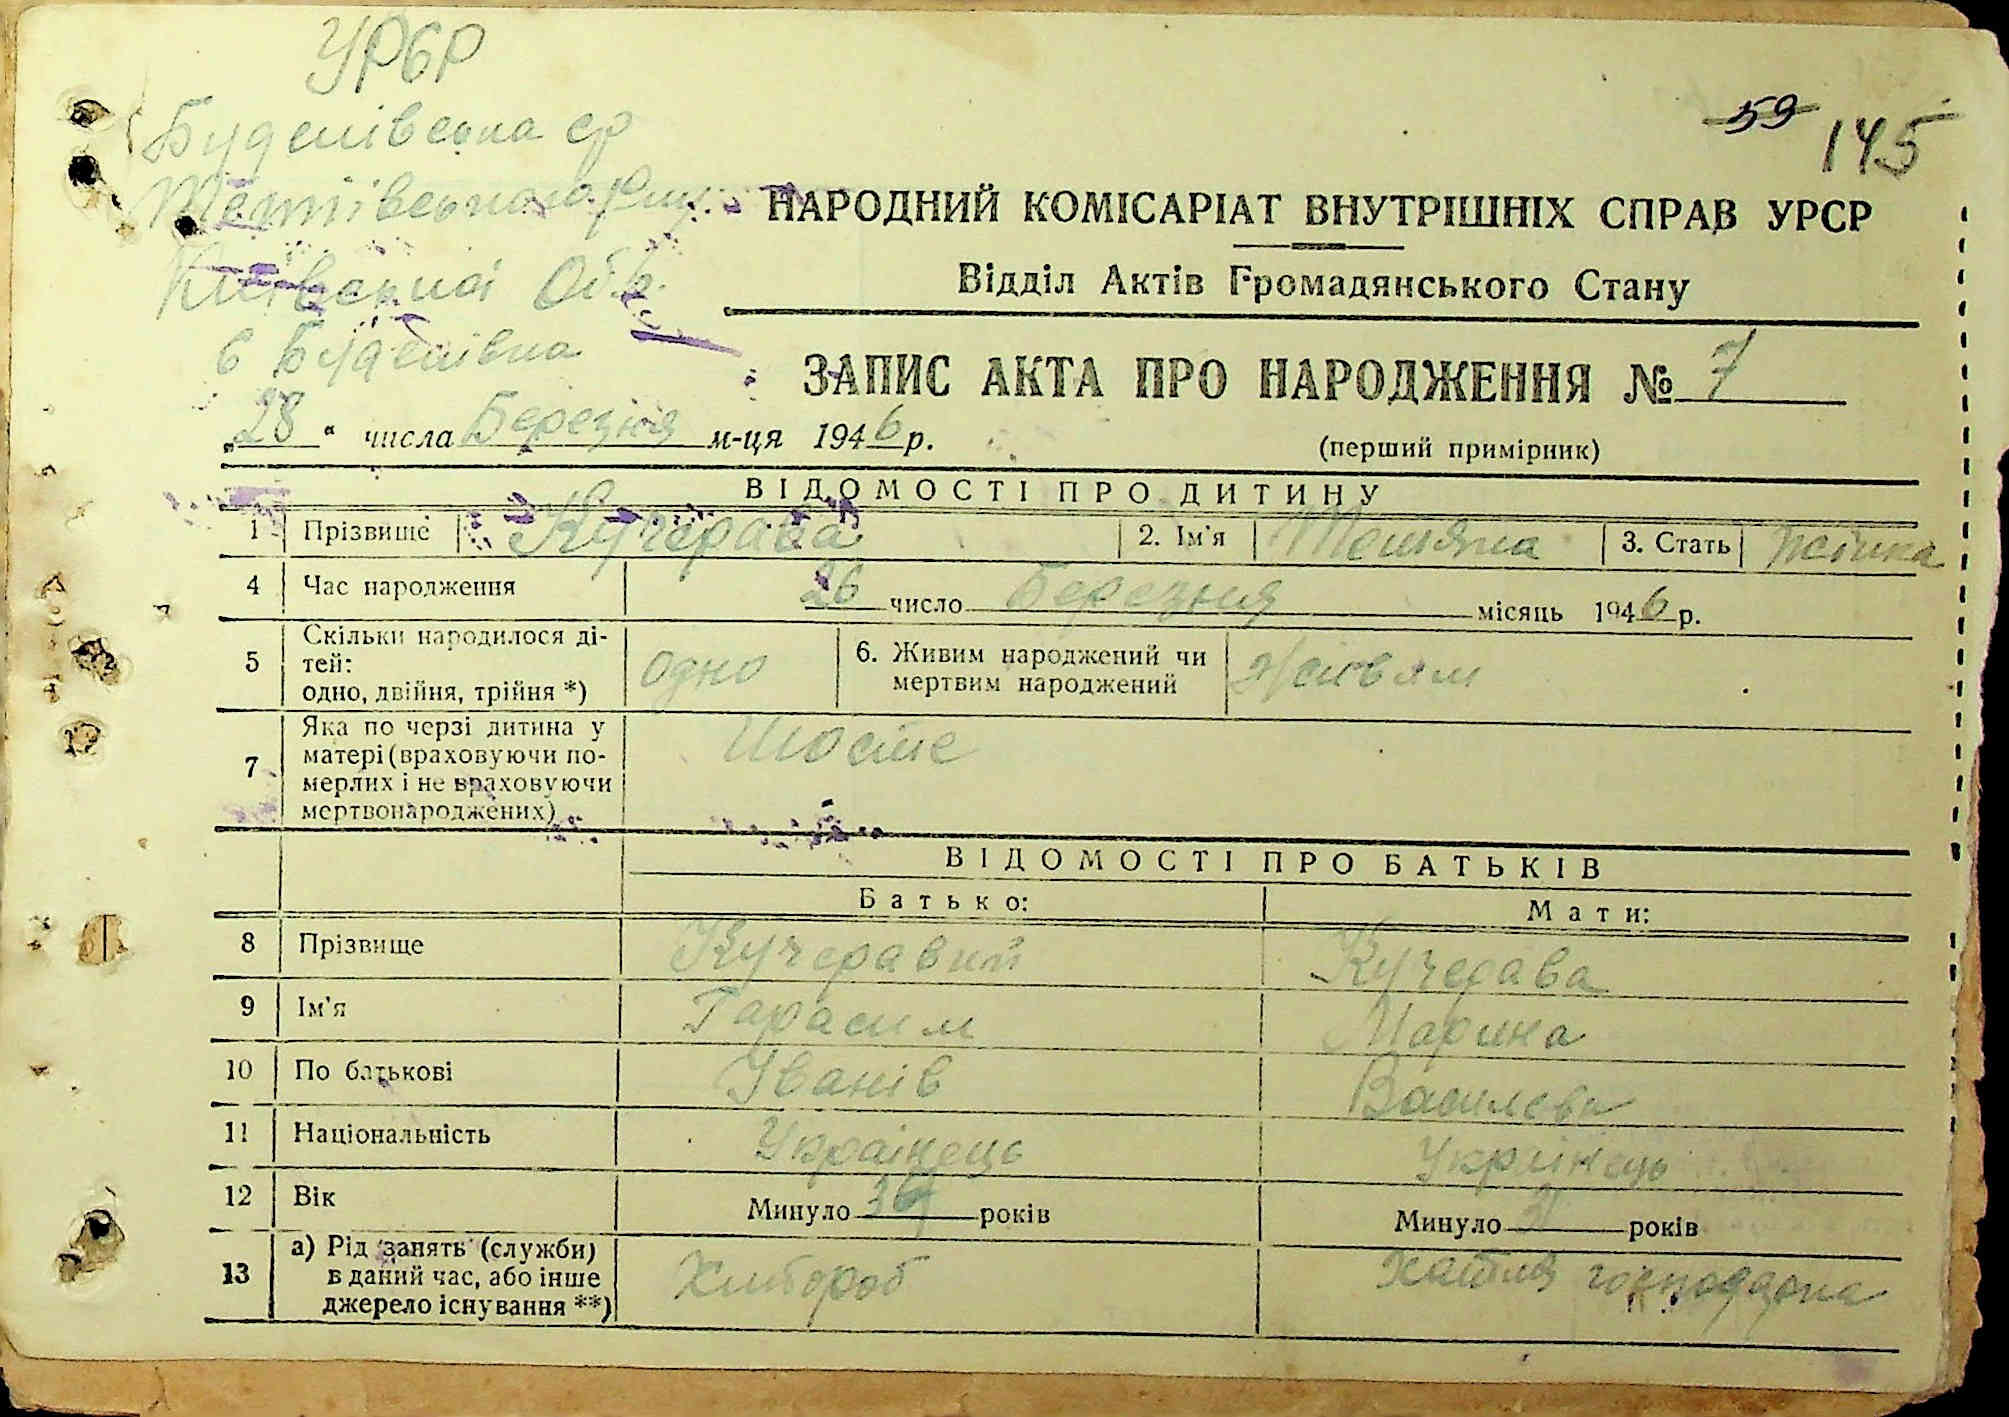 УРСР
59 145
Буденівська ср
Тетіївського р-ну
Київської Обл.
с Буденівка
НАРОДНИЙ КОМІСАРІАТ ВНУТРІШНІХ СПРАВ УРСР
Відділ Актів Громадянського Стану
ЗАПИС АКТА ПРО НАРОДЖЕННЯ № 7
„28“ числа Березня м-ця 1946 р.
(перший примірник)
ВІДОМОСТІ ПРО ДИТИНУ
1 Прізвище Кучерава 2. Ім'я Тетяна 3. Стать жінка
4 Час народження 26 число Березня місяць 1946 р.
5 Скільки народилося ді-
тей:
одно, двійня, трійня *) одно
6. Живим народжений чи
мертвим народжений живим
7 Яка по черзі дитина у
матері (враховуючи по-
мерлих і не враховуючи
мертвонароджених) Шосте
ВІДОМОСТІ ПРО БАТЬКІВ
Батько: Мати:
8 Прізвище Кучеравий Кучерава
9 Ім'я Гарасим Марина
10 По батькові Іванів Василева
11 Національність Українець Українець
12 Вік Минуло років Минуло років
13 а) Рід занять (служби)
в даний час, або інше
джерело існування **) Хлібороб хатня господарка